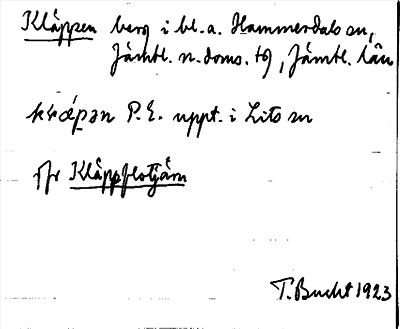 Kläppen berg i bl.a. Hammerdals sn,
Jämtl. n. doms. tg, Jämtl. län
P.E. uppt. i Lits sn
jfr Kläppflotjärn
T. Bucht 1923